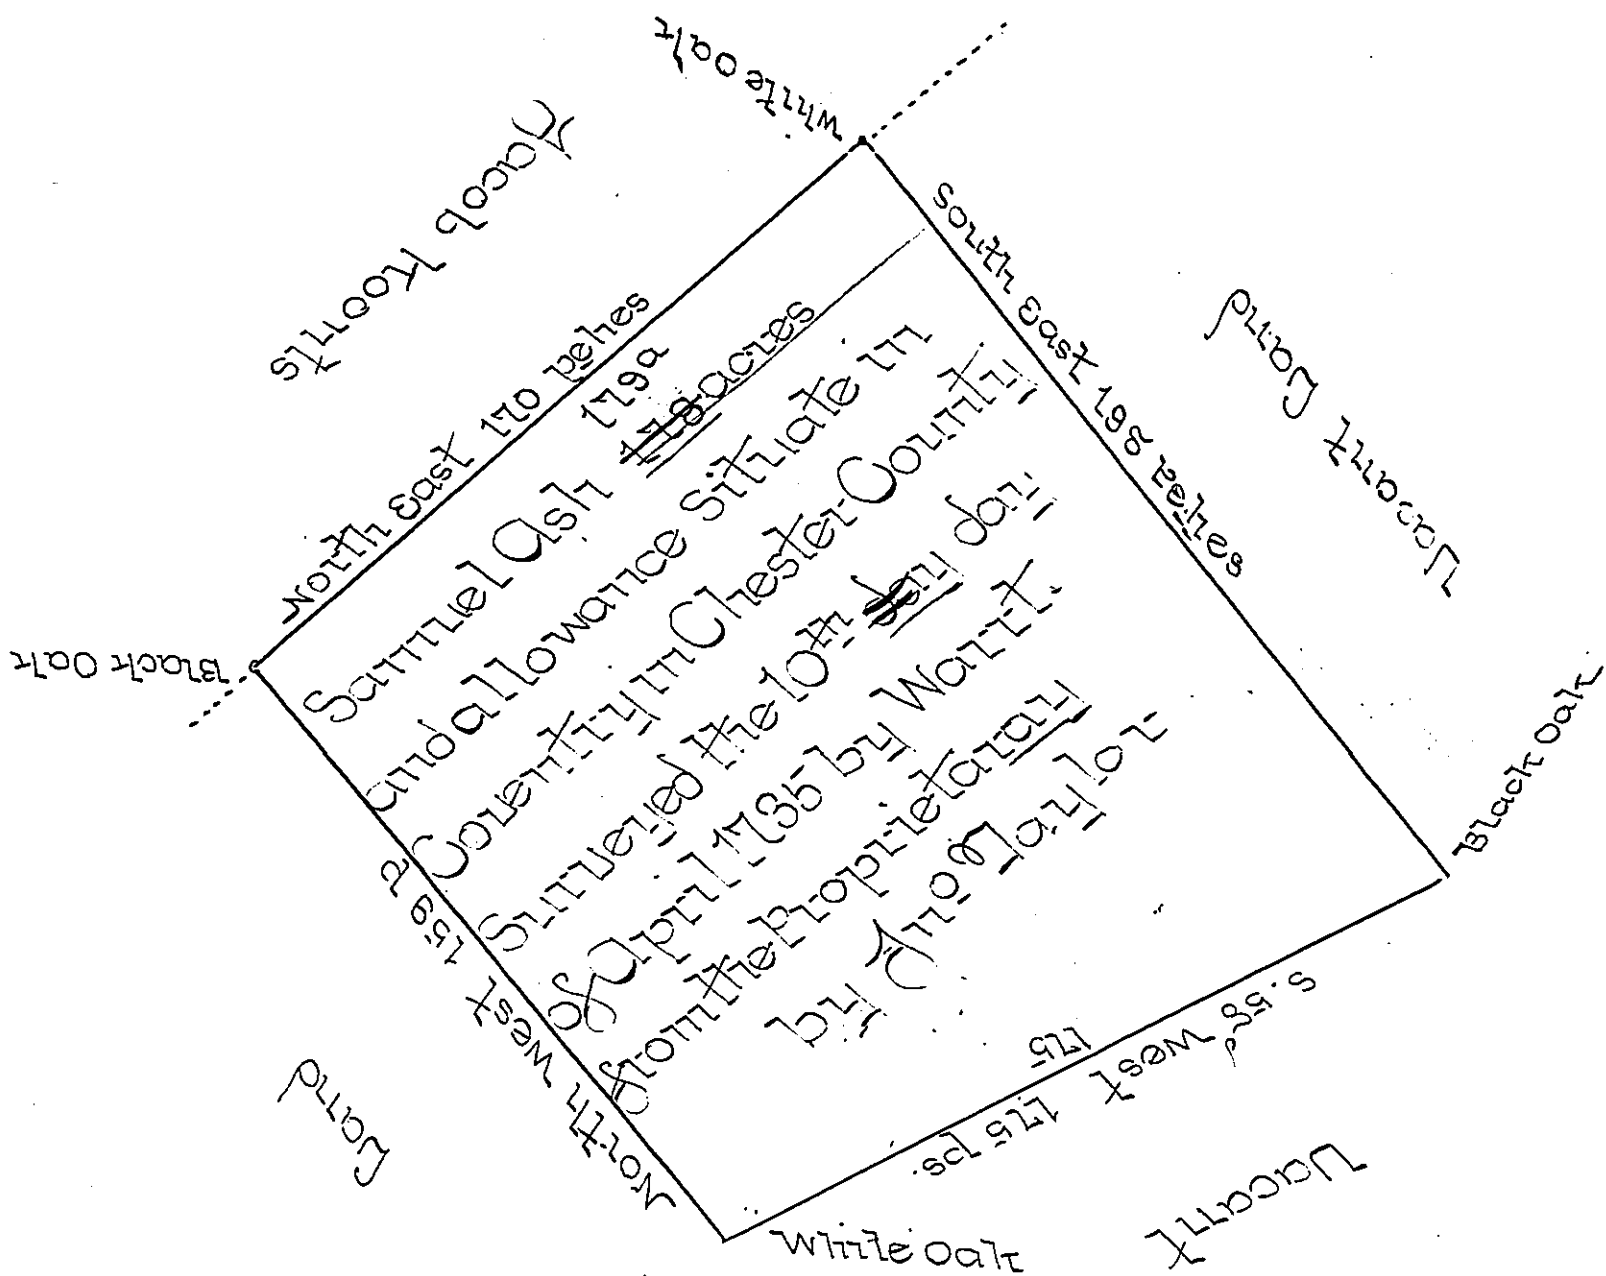 White Oak
Jacob Koonts
North East 170 pches
South East 198 Peches
Vacant Land
Black Oak
Samuel Ash 179a
178 acres
and allowance Situate in
Coventry in Chester County
Surveyed the 10th day day
of April 1735 by Warrt.
from the Proprietarary
by Jno Taylor
Black Oak
North West 159 P
Land
S. 58d West 175 ps.
175
White Oak
Vacant